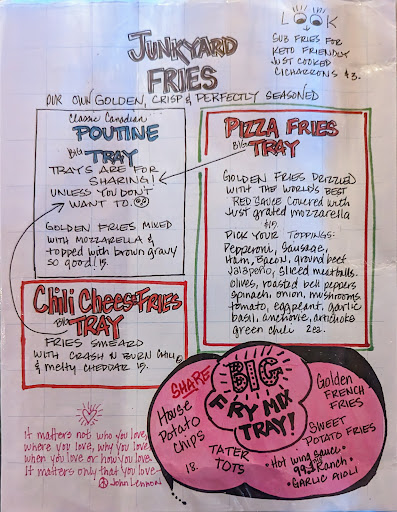 LOOK
SUB FRIES FOR
KETO FRIENDLY
JUST COOKED
CICHARRONS $3.
JUNKYARD
FRIES
OUR OWN GOLDEN, CRISP & PERFECTLY SEASONED
Classic Canadian
POUTINE
BIG TRAY
TRAY'S ARE FOR
SHARING!
UNLESS YOU DON'T
WANT TO.
GOLDEN FRIES MIXED
WITH MOZZARELLA &
topped with brown gravy
SO GOOD! 15.
PIZZA FRIES
BIG TRAY
GOLDEN FRIES DRIZZLED
WITH THE WORLD'S BEST
RED SAUCE COVERED with
JUST grated mozzarella
$15.
PICK YOUR TOPPINGS:
Pepperoni, Sausage,
Ham, Bacon, ground beef
Jalapeño, Sliced meatballs,
olives, roasted bell peppers
spinach, onion, mushrooms,
tomato, eggplant, garlic
basil, anchovie, artichoke
green chili 2ea.
Chili Cheese FRIES
BIG TRAY
FRIES SMEARD
WITH CRASH N BURN CHILI
& melty CHEDDAR 15.
SHARE
BIG
FRY MIX
TRAY!
House
Potato
Chips
18.
TATER
TOTS
Golden
FRENCH
FRIES
SWEET
POTATO FRIES
• Hot Wing Sauce
• 99.1 Ranch •
• GARLIC AIOLI
It matters not who you love,
where you love, why you love
when you love or how you love.
It matters only that you love—
John Lennon